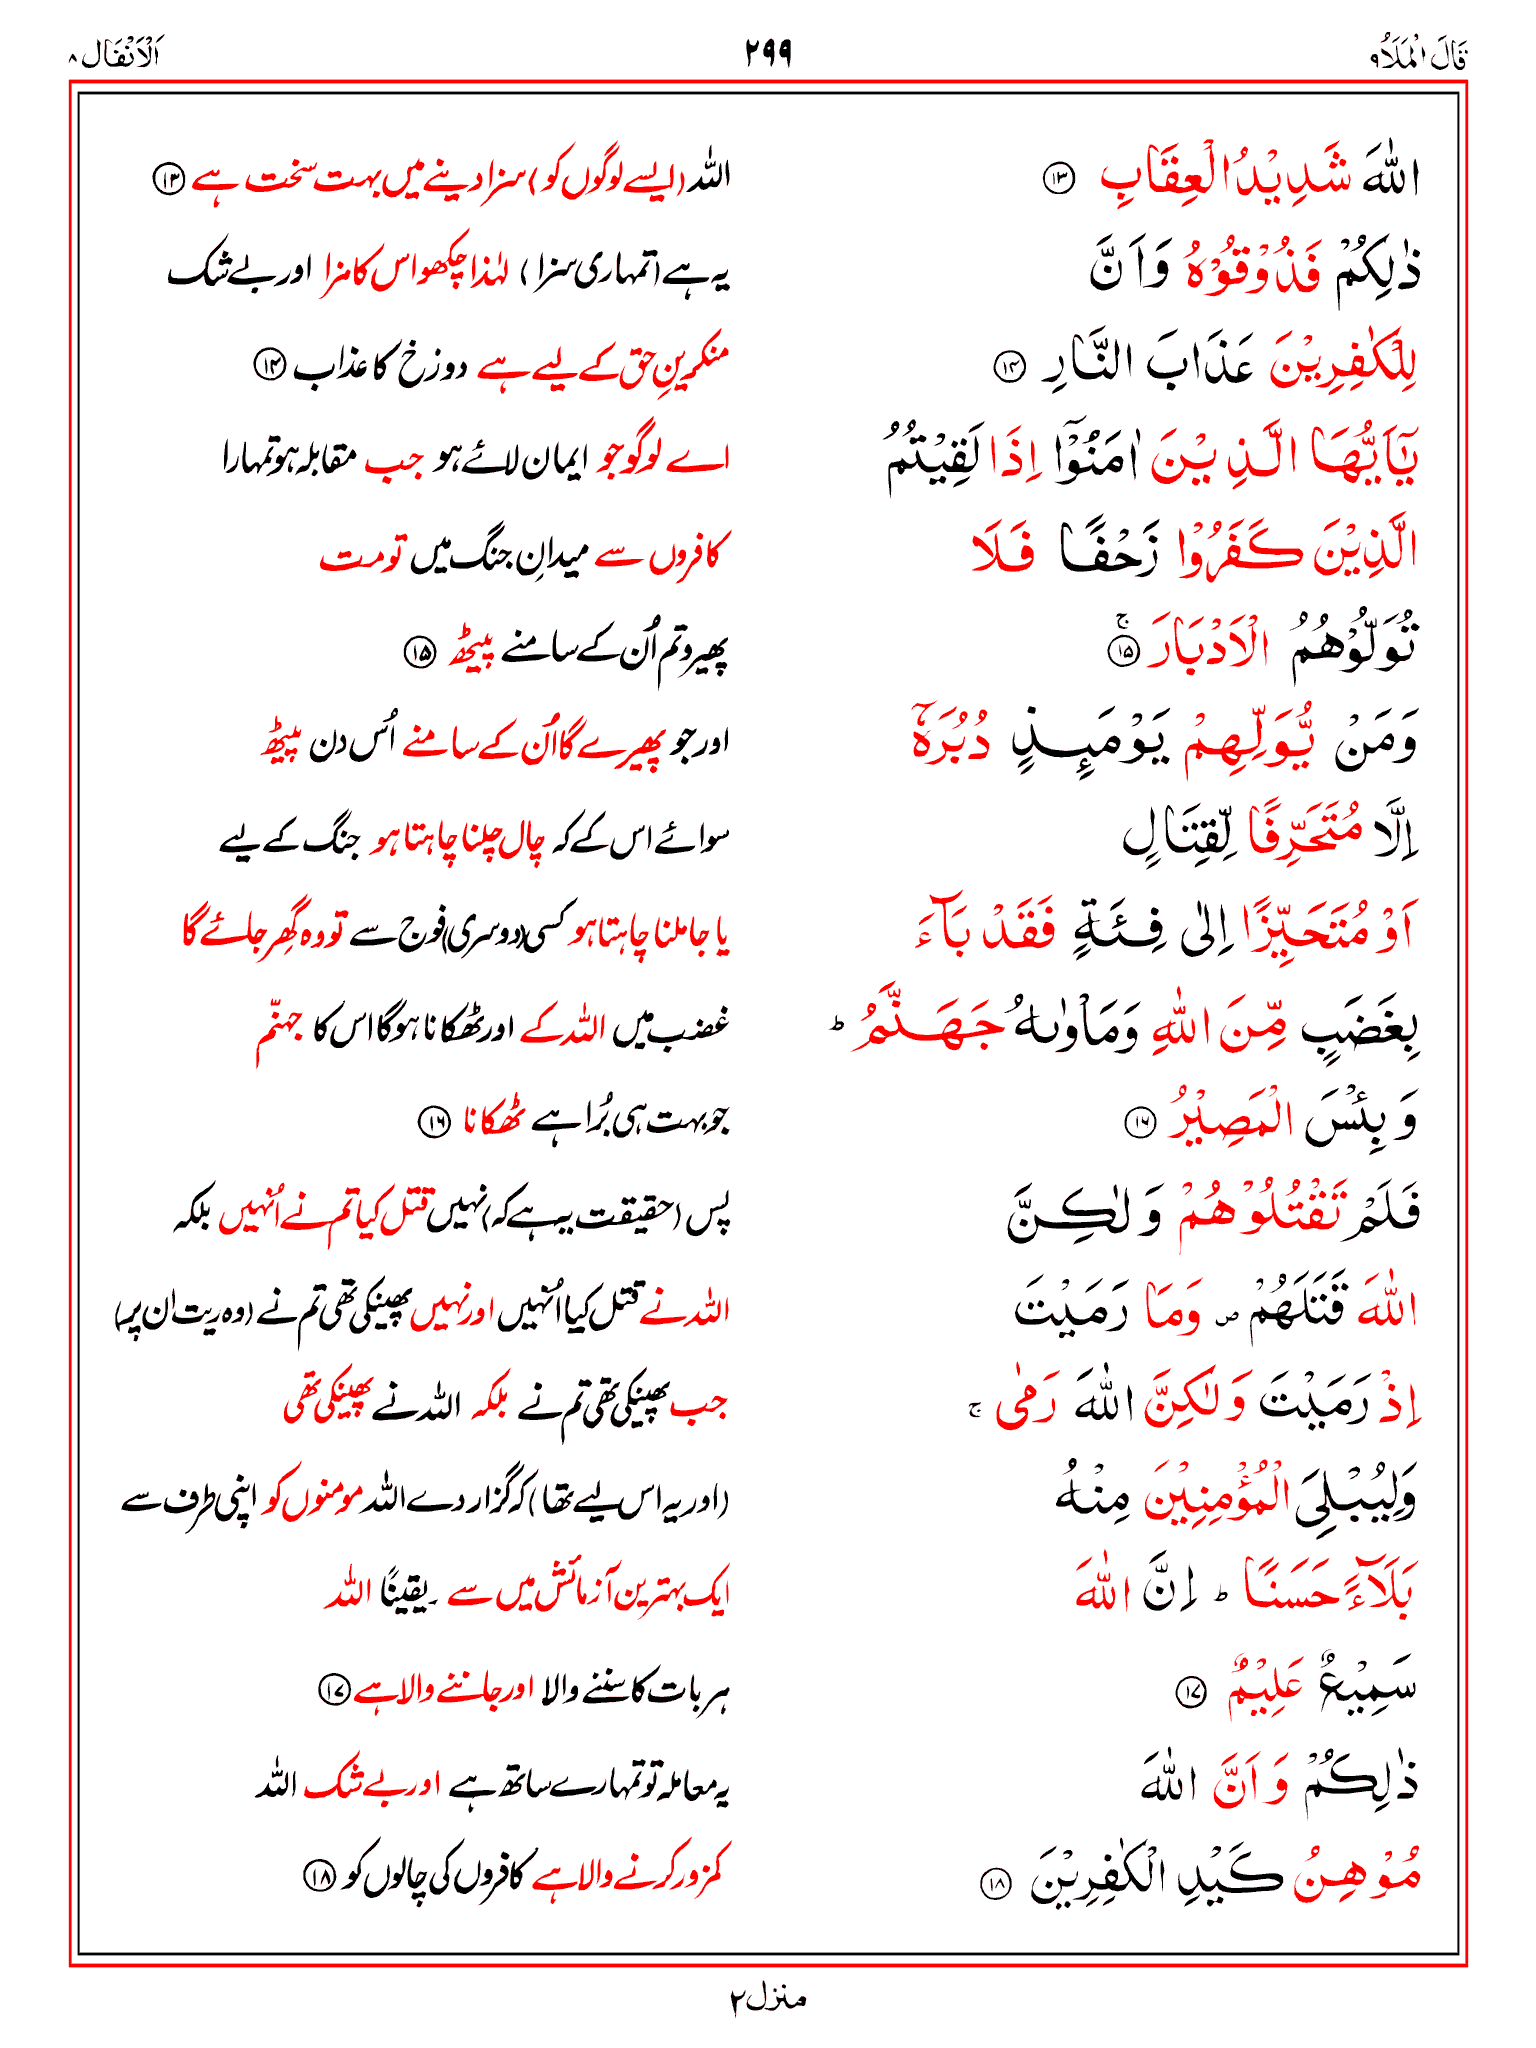 قَالَ الْمَلَاُ ۹ ۲۹۹ اَلْاَنْفَال ۸
اللّٰهَ شَدِيْدُ الْعِقَابِ ۝۱۳ اللہ (ایسے لوگوں کو) سزا دینے میں بہت سخت ہے ۝۱۳
ذٰلِكُمْ فَذُوْقُوْهُ وَاَنَّ یہ ہے (تمہاری سزا) لہٰذا چکھو اس کا مزا اور بے شک
لِلْكٰفِرِيْنَ عَذَابَ النَّارِ ۝۱۴ منکرینِ حق کے لیے ہے دوزخ کا عذاب ۝۱۴
يٰٓاَيُّهَا الَّذِيْنَ اٰمَنُوْٓا اِذَا لَقِيْتُمُ اے لوگو جو ایمان لائے ہو جب مقابلہ ہو تمہارا
الَّذِيْنَ كَفَرُوْا زَحْفًا فَلَا کافروں سے میدانِ جنگ میں تو مت
تُوَلُّوْهُمُ الْاَدْبَارَ ۝۱۵ۚ پھیرو تم اُن کے سامنے پیٹھ ۝۱۵
وَمَنْ يُّوَلِّهِمْ يَوْمَىِٕذٍ دُبُرَهٗٓ اور جو پھیرے گا اُن کے سامنے اُس دن پیٹھ
اِلَّا مُتَحَرِّفًا لِّقِتَالٍ سوائے اس کے کہ چال چلنا چاہتا ہو جنگ کے لیے
اَوْ مُتَحَيِّزًا اِلٰى فِئَةٍ فَقَدْ بَآءَ یا جا ملنا چاہتا ہو کسی (دوسری) فوج سے تو وہ گھِر جائے گا
بِغَضَبٍ مِّنَ اللّٰهِ وَمَاْوٰىهُ جَهَنَّمُ ؕ غضب میں اللہ کے اور ٹھکانا ہوگا اس کا جہنّم
وَبِئْسَ الْمَصِيْرُ ۝۱۶ جو بہت ہی بُرا ہے ٹھکانا ۝۱۶
فَلَمْ تَقْتُلُوْهُمْ وَلٰكِنَّ پس (حقیقت یہ ہے کہ) نہیں قتل کیا تم نے اُنہیں بلکہ
اللّٰهَ قَتَلَهُمْ ۪ وَمَا رَمَيْتَ اللہ نے قتل کیا اُنہیں اور نہیں پھینکی تھی تم نے (وہ ریت ان پر)
اِذْ رَمَيْتَ وَلٰكِنَّ اللّٰهَ رَمٰى ۚ جب پھینکی تھی تم نے بلکہ اللہ نے پھینکی تھی
وَلِيُبْلِىَ الْمُؤْمِنِيْنَ مِنْهُ (اور یہ اس لیے تھا) کہ گزار دے اللہ مومنوں کو اپنی طرف سے
بَلَآءً حَسَنًا ؕ اِنَّ اللّٰهَ ایک بہترین آزمائش میں سے ۔ یقینًا اللہ
سَمِيْعٌ عَلِيْمٌ ۝۱۷ ہر بات کا سننے والا اور جاننے والا ہے ۝۱۷
ذٰلِكُمْ وَاَنَّ اللّٰهَ یہ معاملہ تو تمہارے ساتھ ہے اور بے شک اللہ
مُوْهِنُ كَيْدِ الْكٰفِرِيْنَ ۝۱۸ کمزور کرنے والا ہے کافروں کی چالوں کو ۝۱۸
منزل ۲